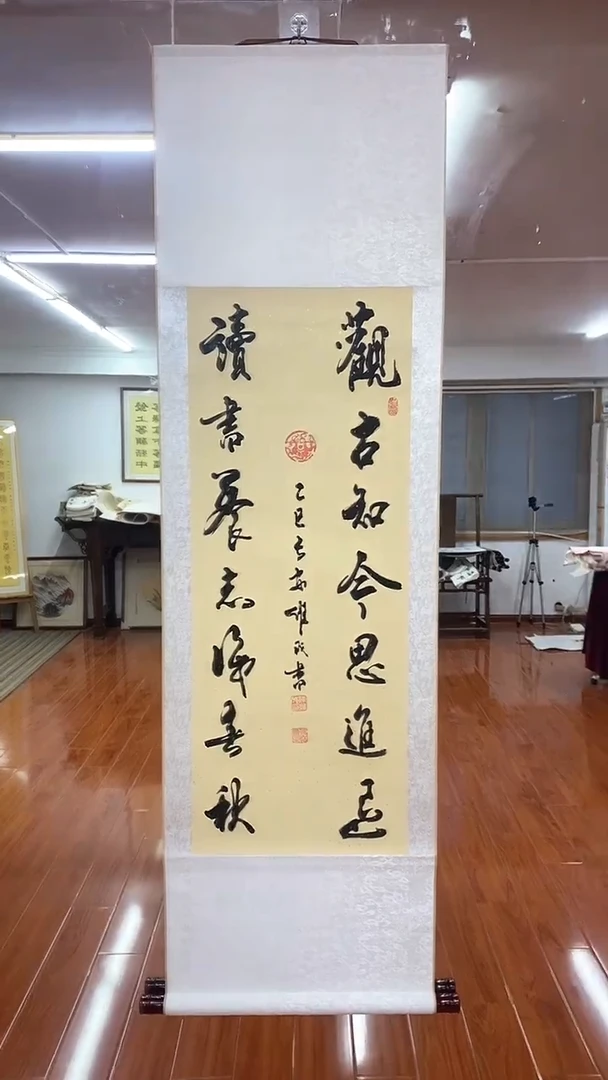 觀古知今思進退
乙巳長安書
讀書養志春秋